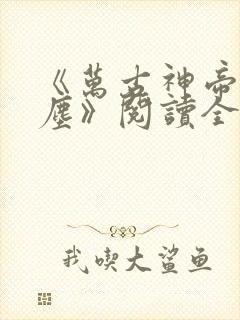 《萬古神帝
塵》閱讀全
我喫大鯊鱼